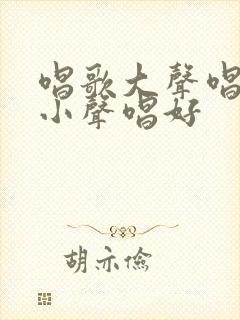 唱歌大聲唱
小聲唱好
胡亦儉